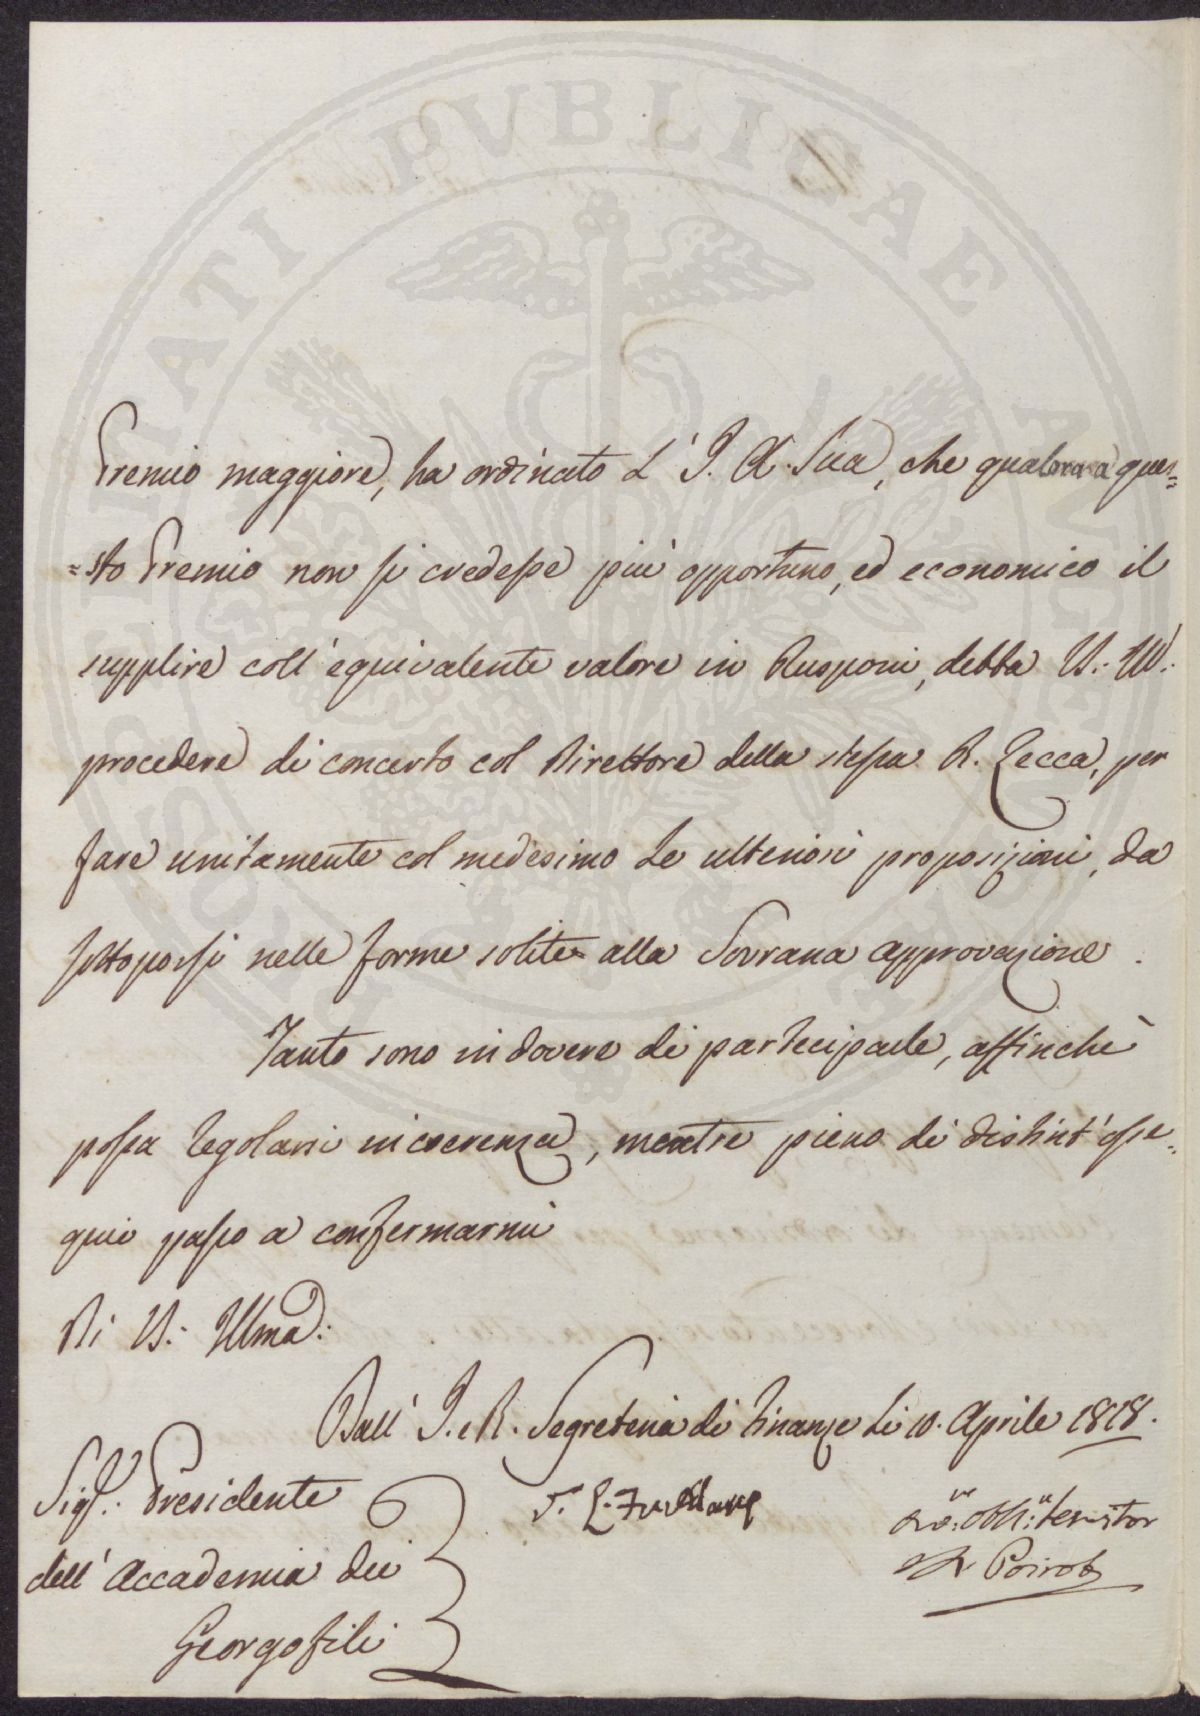 PROSPERITATI PVBLICAE AVGENDAE
Premio maggiore, ha ordinato L' I. A. Sua, che qualora a que=
=sto Premio non si credesse più opportuno, ed economico il
supplire coll' equivalente valore in Rusponi, debba V.: S.
procedere di concerto col Direttore della stessa R. Zecca, per
fare unitamente col medesimo Le ulteriori proposizioni, da
sottoporsi nelle forme solite alla Sovrana approvazione.
Tanto sono in dovere di partecipale, affinchè
possa regolarsi in coerenza, mentre pieno di distint' osse=
quio passo a confermarmi
Di V.: Illma:
Dall' I. e R. Segreteria di Finanze Li 10. Aprile 1818.
Sig.: Presidente
dell' Accademia dei
Georgofili